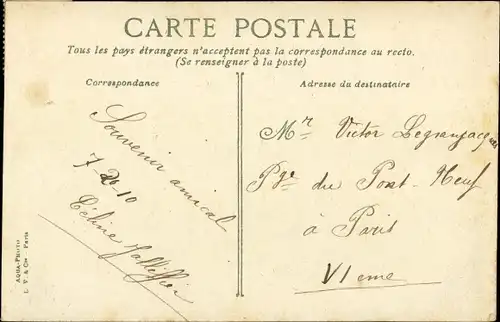 CARTE POSTALE
Tous les pays étrangers n'acceptent pas la correspondance au recto.
(Se renseigner à la poste)
Correspondance
Adresse du destinataire
Souvenir amical
7-20-10
Céline
Mr Victor
Pge du Pont-Neuf
à Paris
VIeme
AQUA-PHOTO
L. V. & Cie Paris